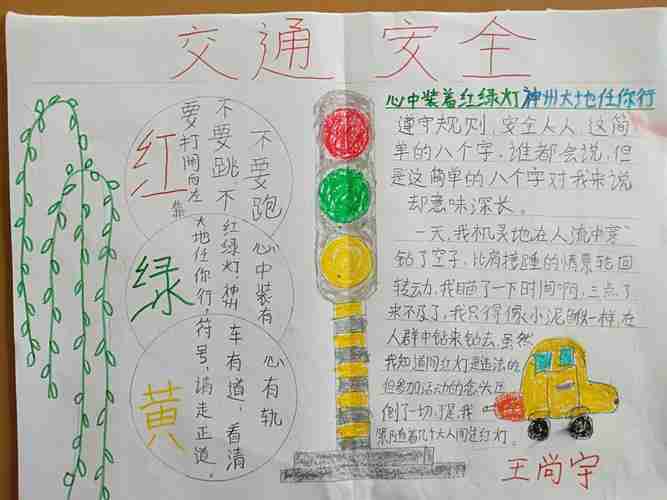 交通安全
红
不要跑
不要跳不
要打闹向左
靠
绿
心中装有
红绿灯，神州
大地任你行，
黄
心有轨
车有道，看清
符号，请走正道。
心中装着红绿灯神州大地任你行
遵守规则，安全人人 这简
单的八个字，谁都会说，但
是这简单的八个字对我来说
却意味深长。
一天，我机灵地在人流中穿
钻了空子，比肩接踵的情景轮回
转动，我瞄了一下时间啊，三点了
来不及了，我只得像小泥鳅一样，在
人群中钻来钻去，虽然
我知道闯红灯是违法的
但参加活动的念头压
倒了一切，于是，我
随着几十人闯红灯。
王尚宇